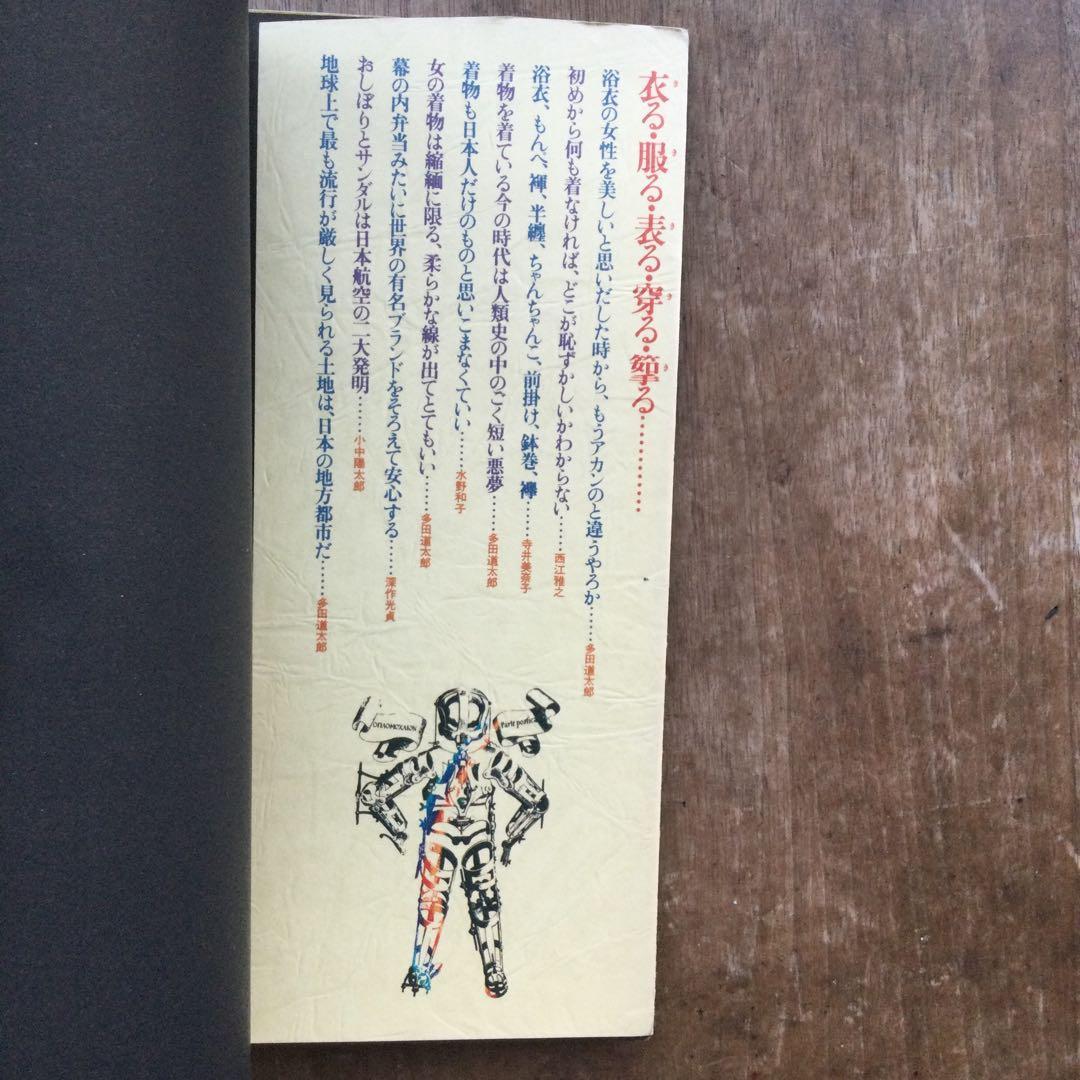 衣る・服る・表る・穿る・箰る…………
浴衣の女性を美しいと思いだした時から、もうアカンのと違うやろか……多田道太郎
初めから何も着なければ、どこが恥ずかしいかわからない……西江雅之
浴衣、もんぺ、褌、半纏、ちゃんちゃんこ、前掛け、鉢巻、襷……寺井美奈子
着物を着ている今の時代は人類史の中のごく短い悪夢……多田道太郎
着物も日本人だけのものと思いこまなくていい……水野和子
女の着物は縮緬に限る、柔らかな線が出てとてもいい……多田道太郎
幕の内弁当みたいに世界の有名ブランドをそろえて安心する……深作光貞
おしぼりとサンダルは日本航空の二大発明……小中陽太郎
地球上で最も流行が厳しく見られる土地は、日本の地方都市だ……多田道太郎